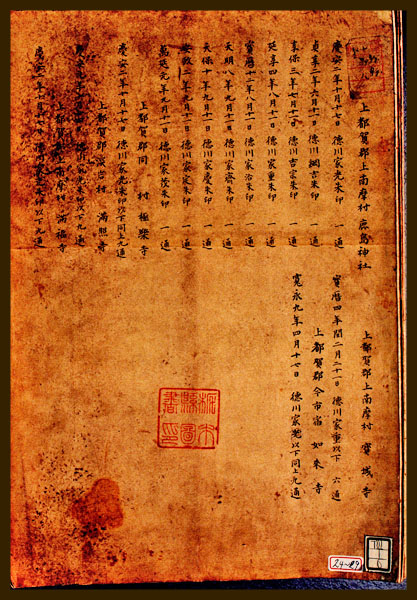 上都賀郡上南摩村 鹿島神社
慶安二年十月十七日 徳川家光朱印 一通
貞享二年六月十一日 徳川綱吉朱印 一通
享保三年七月十一日 徳川吉宗朱印 一通
延享四年八月十一日 徳川家重朱印 一通
宝暦十二年八月十一日 徳川家治朱印 一通
天明八年九月十一日 徳川家斉朱印 一通
天保十年九月十一日 徳川家慶朱印 一通
安政二年九月十一日 徳川家定朱印 一通
萬延元年九月十一日 徳川家茂朱印 一通
上都賀郡同 村 極楽寺
慶安 年十月十一日 徳川家光朱印以下同上九通
上都賀郡 村 満照寺
徳川家 朱印以下九通
上都賀郡上南摩村 満福寺
慶安二年 月十一日 徳川家光朱印以下九通
上都賀郡上南摩村 寶城寺
寶暦四年閏二月二十一日 徳川家重以下 六通
上都賀郡今市宿 如来寺
寛永九年四月十七日 徳川家光以下同上九通
栃木縣圖書印
24-29